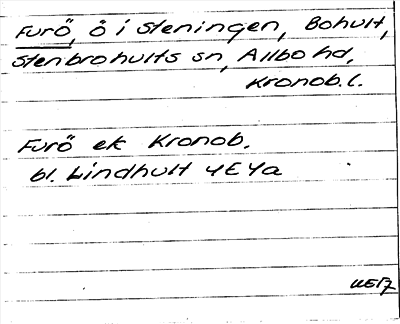 Furö, ö i Steningen, Bohult,
Stenbrohults sn, Allbo hd,
Kronob.l.
Furö ek Kronob.
bl. Lindhult 4E4a